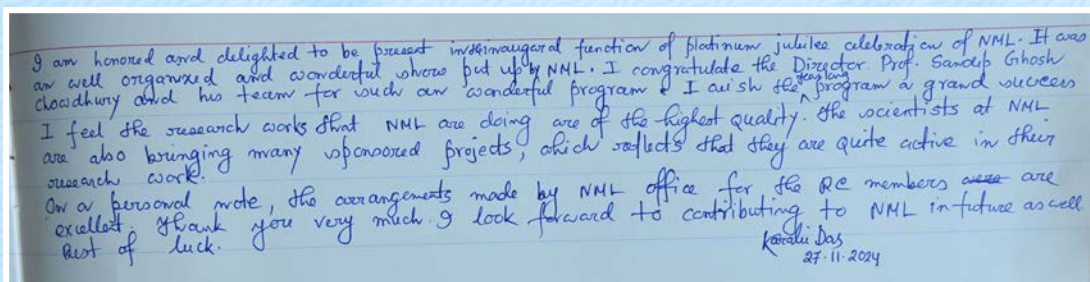 I am honored and delighted to be present in the inaugaral function of platinum jubilee celebration of NML. It was
an well organized and wonderful show put up by NML. I congratulate the Director Prof. Sandip Ghosh
Chowdhury and his team for such an wonderful program & I wish the year long program a grand success
I feel the research works that NML are doing are of the highest quality. The scientists at NML
are also bringing many sponsored projects, which reflects that they are quite active in their
research work.
On a personal note, the arrangements made by NML office for the RC members are
excellent. Thank you very much. I look forward to contributing to NML in future as well
Best of luck.
Das
27.11.2024